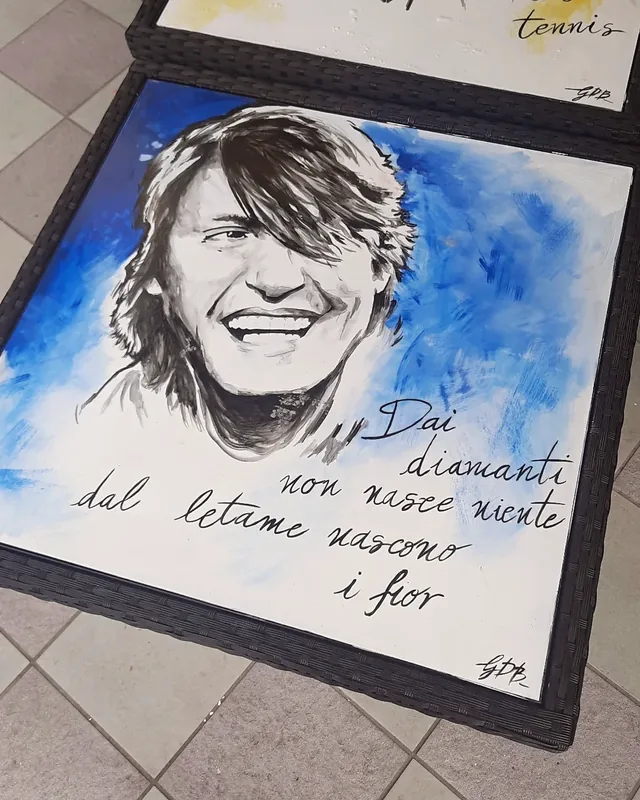 tennis
GDB
Dai
diamanti
non nasce niente
dal letame nascono
i fior
GDB